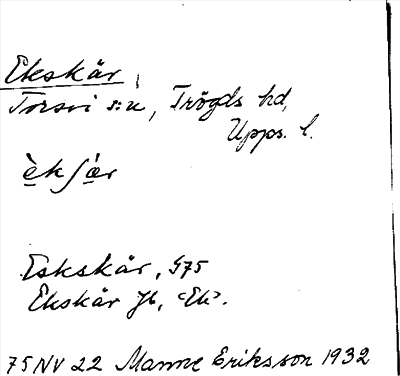 Ekskär,
Torsvi s:n, Trögds hd,
Upps. l.
èkʃæ̀r
Eskskär, G75
Ekskär Jb, <Ek>.
75 NV 22 Manne Eriksson 1932